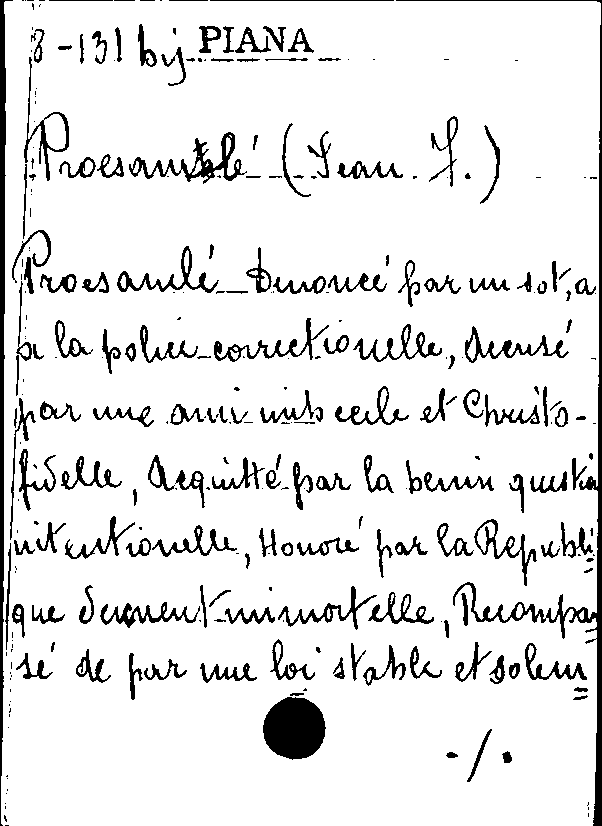 8-131 bij PIANA
Proesamlé (Jean. F.)
Proesamlé Denoncé par un sot, a
a la police correctionelle, Accusé
par une ami imbecile et Christo-
fidelle, Acquitté par la benin question
intentionelle, Honoré par la Republi
que dument immortelle, Recompan
sé de par une loi stable et solem
./.